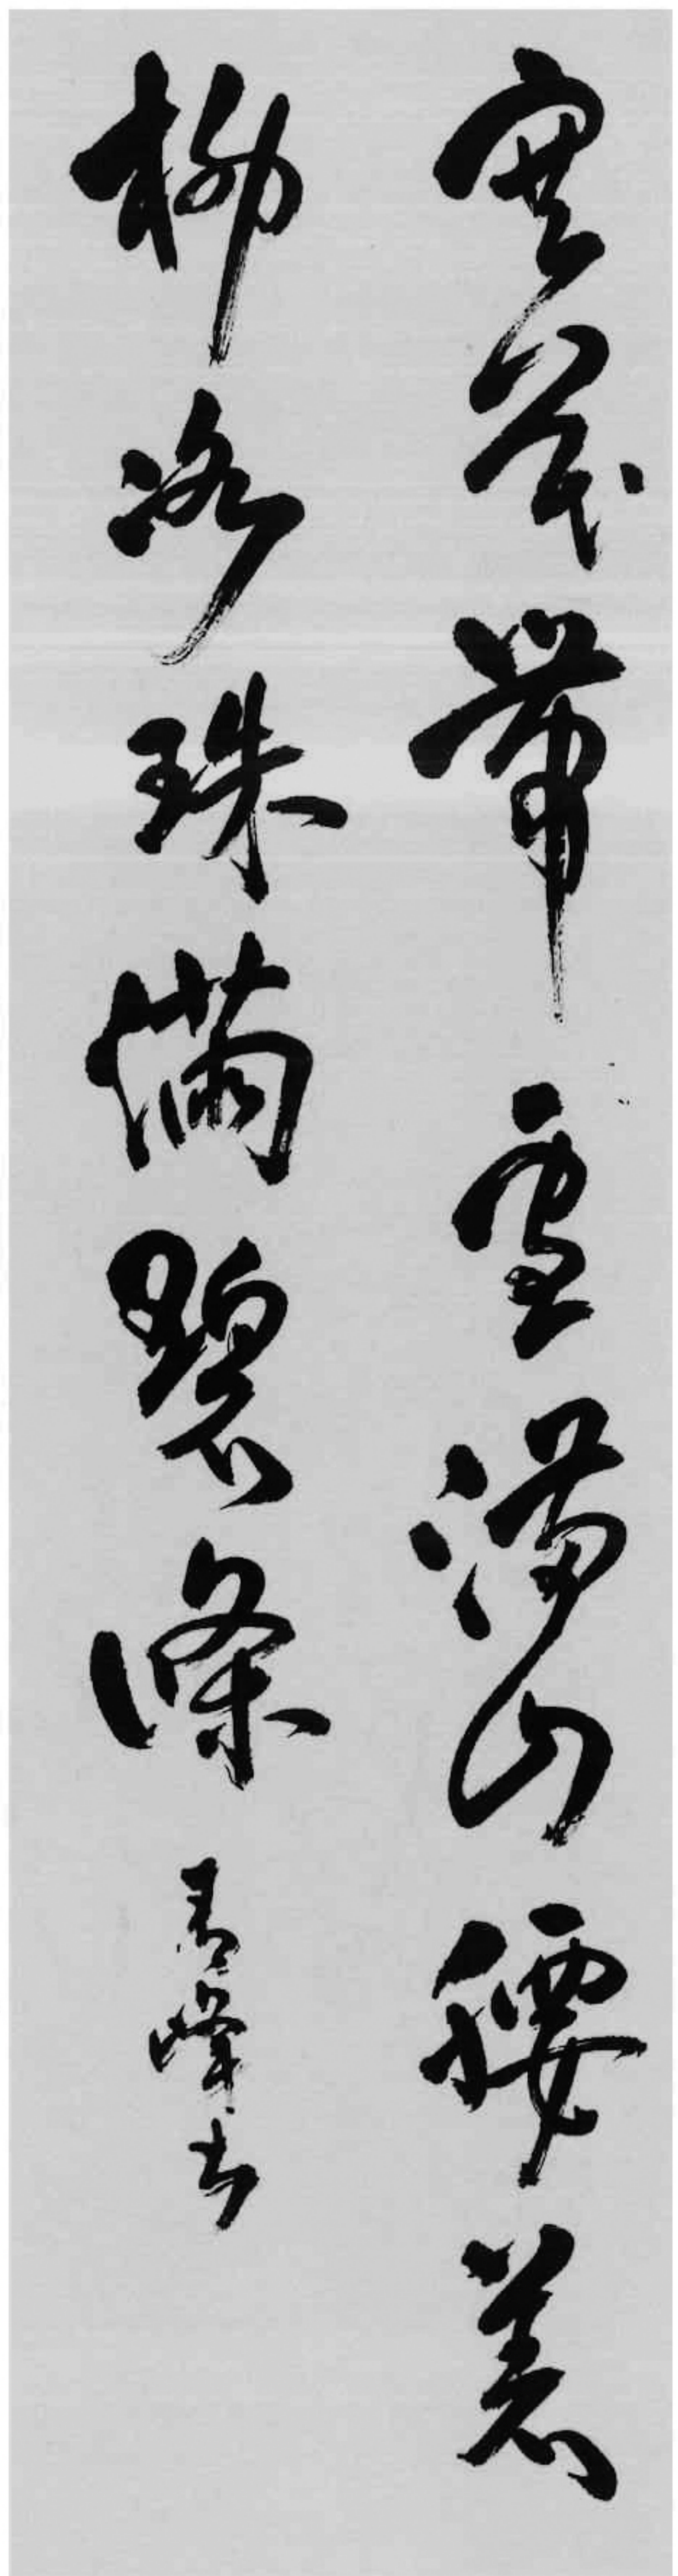 寒花帶雪滿山腰着
柳冰珠滿碧條
青峰书